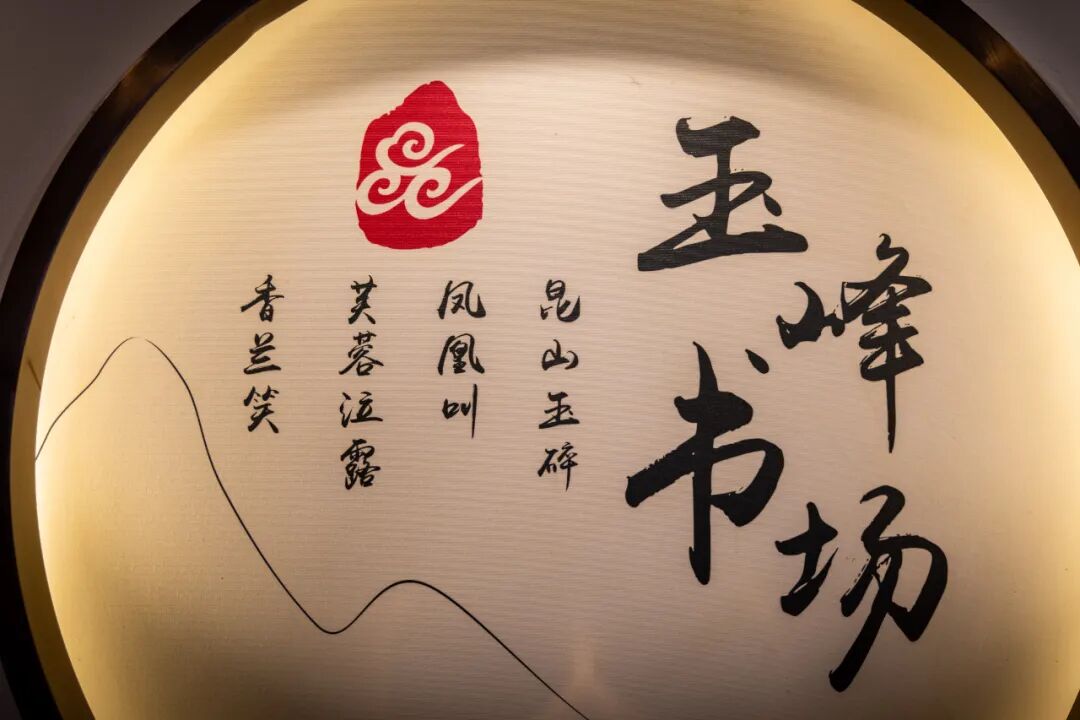 玉峰书场
昆山玉碎
凤凰叫
芙蓉泣露
香兰笑